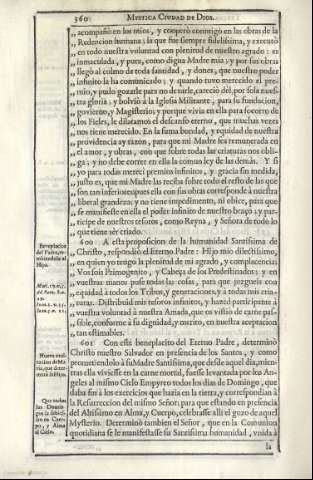 360 MYSTICA CIUDAD DE DIOS.
„ acompañò en los mios, y cooperò conmigo en las obras de la
„ Redencion humana: la que fue siempre fidelissima, y executò
„ en todo nuestra voluntad con plenitud de nuestro agrado: es
„ inmaculada, y pura, como digna Madre mia; y por sus obras
„ llegò al colmo de toda santidad, y dones, que nuestro poder
„ infinito la ha comunicado: y quando tuvo merecido el pre-
„ mio, y pudo gozarle para no dexarle, careciò dèl, por sola nues-
„ tra gloria; y bolviò à la Iglesia Militante, para su fundacion,
„ govierno, y Magisterio; y porque viva en ella para socorro de
„ los Fieles, le dilatamos el descanso eterno, que muchas vezes
„ nos tiene merecido. En la suma bondad, y equidad de nuestra
„ providencia ay razon, para que mi Madre sea remunerada en
„ el amor, y obras, con que sobre todas las criaturas nos obli-
„ ga; y no debe correr en ella la comun ley de las demàs. Y si
„ yo para todas merecì premios infinitos, y gracia sin medida,
„ justo es, que mi Madre los reciba sobre todo el resto de las que
„ son tan inferiores; pues ella con sus obras corresponde à nuestra
„ liberal grandeza; y no tiene impedimento, ni obice, para que
„ se manifieste en ella el poder infinito de nuestro braço; y par-
„ ticipe de nuestros tesoros, como Reyna, y Señora de todo lo
„ que tiene sèr criado.
Beneplacito
del Padre,
Hijo.
600 A esta proposicion de la humanidad Santissima de
Christo, respondiò el Eterno Padre: Hijo mio dilectissimo,
„ en quien yo tengo la plenitud de mi agrado, y complacencia;
Mat. 17. v. 5.
„ Vos sois Primogenito, y Cabeça de los Predestinados; y en
„ vuestras manos puse todas las cosas, para que juzgueis con
„ equidad à todos los Tribus, y generaciones, y à todas mis cria-
„ turas. Distribuid mis tesoros infinitos, y hazed participante à
„ vuestra voluntad à nuestra Amada, que os vistiò de carne pas-
„ sible, conforme à su dignidad, y merito, en nuestra aceptacion
„ tan estimables.
601 Con este beneplacito del Eterno Padre, determinò
Christo nuestro Salvador en presencia de los Santos, y como
prometiendolo à su Madre Santissima, que desde aquel dia, mien-
tras ella viviesse en la carne mortal, fuesse levantada por los An-
geles al mismo Cielo Empyreo todos los dias de Domingo, que
daba fin à los exercicios que hazia en la tierra, y correspondian à
la Resurreccion del mismo Señor; para que estando en presencia
del Altissimo en Alma, y Cuerpo, celebrasse allì el gozo de aquel
Que todos
los Domin-
Mysterio. Determinò tambien el Señor, que en la Comunion
quotidiana se le manifestasse su Santissima humanidad, unida à
la